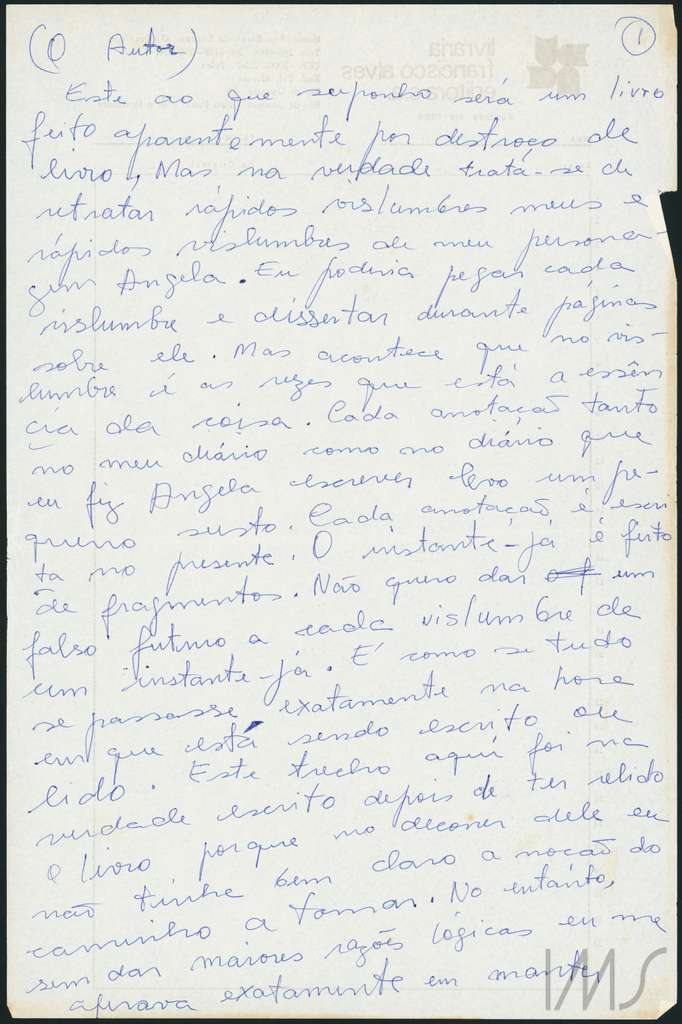 (O Autor)
1
Este ao que suponho será um livro
feito aparentemente por destroço de
livro. Mas na verdade trata-se de
retratar rápidos vislumbres meus e
rápidos vislumbres de meu persona-
gem Angela. Eu poderia pegar cada
vislumbre e dissertar durante páginas
sobre ele. Mas acontece que no vis-
lumbre é as vezes que está a essên
cia da coisa. Cada anotação tanto
no meu diário como no diário que
eu fiz Angela escrever, levo um pe-
queno susto. Cada anotação é escri
ta no presente. O instante-já é feito
de fragmentos. Não quero dar um
falso futuro a cada vislumbre de
um instante-já. É como se tudo
se passasse exatamente na hora
em que está sendo escrito ou
lido. Este trecho aqui foi na
verdade escrito depois de ter relido
o livro porque no decorrer dele eu
não tinha bem claro a noção do
caminho a tomar. No entanto,
sem dar maiores razões lógicas eu me
aferrava exatamente em manter
livraria
francisco alves
editora
IMS